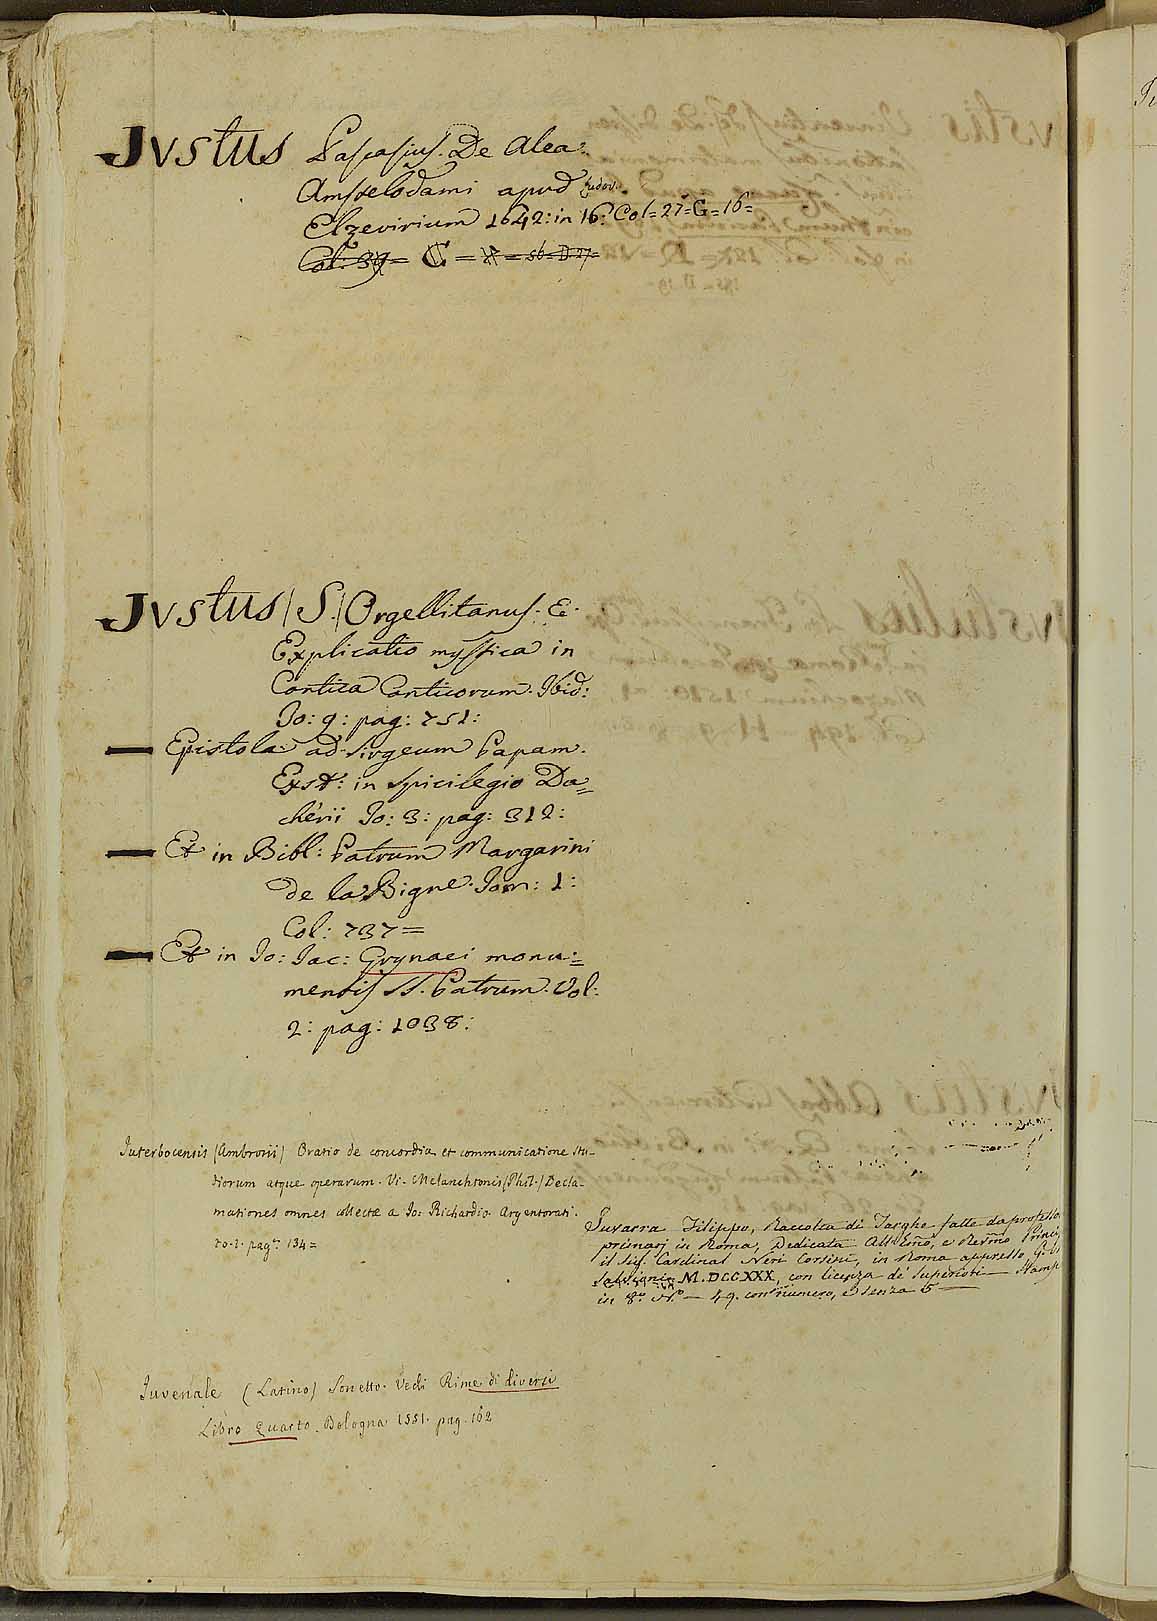 Justus Pascasius. De Alea.
Amstelodami apud Ludov.
Elzevirium 1642: in 16: Col=27=G=16=
Col: 39= C =
Justus (S.) Orgellitanus. E.
Explicatio mystica in
Cantica Canticorum. Ibid:
To: 9: pag: 751:
Epistola ad Sirgeum Papam.
Exst: in Spicilegio Da=
chérii To: 3: pag: 312:
Et in Bibl: Patrum Margarini
de la Bigne. Tom: 1:
Col: 737=
Et in Jo: Jac: Grynaei monu=
mentis SS. Patrum. Vol:
2: pag: 1038:
Juterbocensis (Ambrosii) Oratio de concordia et communicatione stu-
diorum atque operarum. Vi. Melanchtonis (Phil.) Decla-
mationes omnes collectæ a Jo: Richardio. Argentorati.
to. 1. pag. 134=
Juvarra Filippo, Raccolta di Targhe fatte da professo
primarj in Roma, Dedicata All'Emo, e Revmo Princi
il Sig. Cardinal Neri Corsini, in Roma appresso G.
M.DCCXXX, con licenza de' Superiori — Stamp
in 8.º N.º — 49. con numero, e senza 5 —
Iuvenale (Latino) Sonetto. Vedi Rime di diversi
Libro Quarto. Bologna 1551. pag. 162